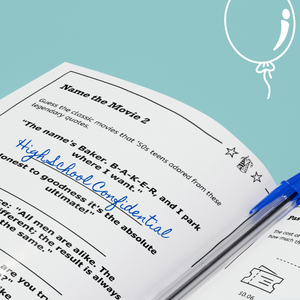 Name the Movie 2
Guess the classic movies that '50s teens adored from these
legendary quotes.
"The name's Baker. B-A-K-E-R, and I park
where I want."
High School Confidential
honest to goodness it's the absolute
ultimate!"
"All men are alike. The
different; the result is always
the same."
are you